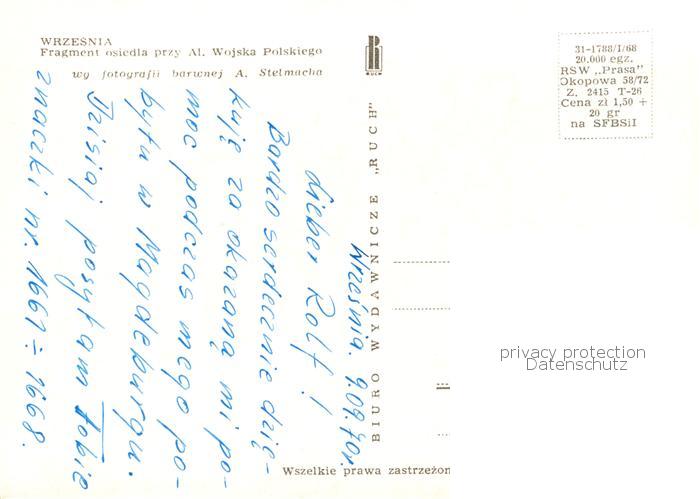 WRZEŚNIA
Fragment osiedla przy Al. Wojska Polskiego
wg fotografii barwnej A. Stelmacha
RUCH
BIURO WYDAWNICZE „RUCH"
31-1788/I/68
20.000 egz.
RSW „Prasa"
Okopowa 58/72
Z. 2415 T-26
Cena zł 1,50 +
20 gr
na SFBSiI
Września. 9.09.70r.
Lieber Rolf!
Bardzo serdecznie dzię-
kuję za okazaną mi po-
moc podczas mego po-
bytu w Magdeburgu.
Dzisiaj posyłam Tobie
znaczki nr. 1661 ÷ 1668.
privacy protection
Datenschutz
Wszelkie prawa zastrzeżon